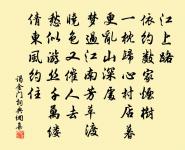 江上路
依約數家煙樹
一枕歸心村店暮
更亂山深處
夢過江南芳草渡
曉色又催人去
愁似游絲千萬縷
倩東風約住
謁金門